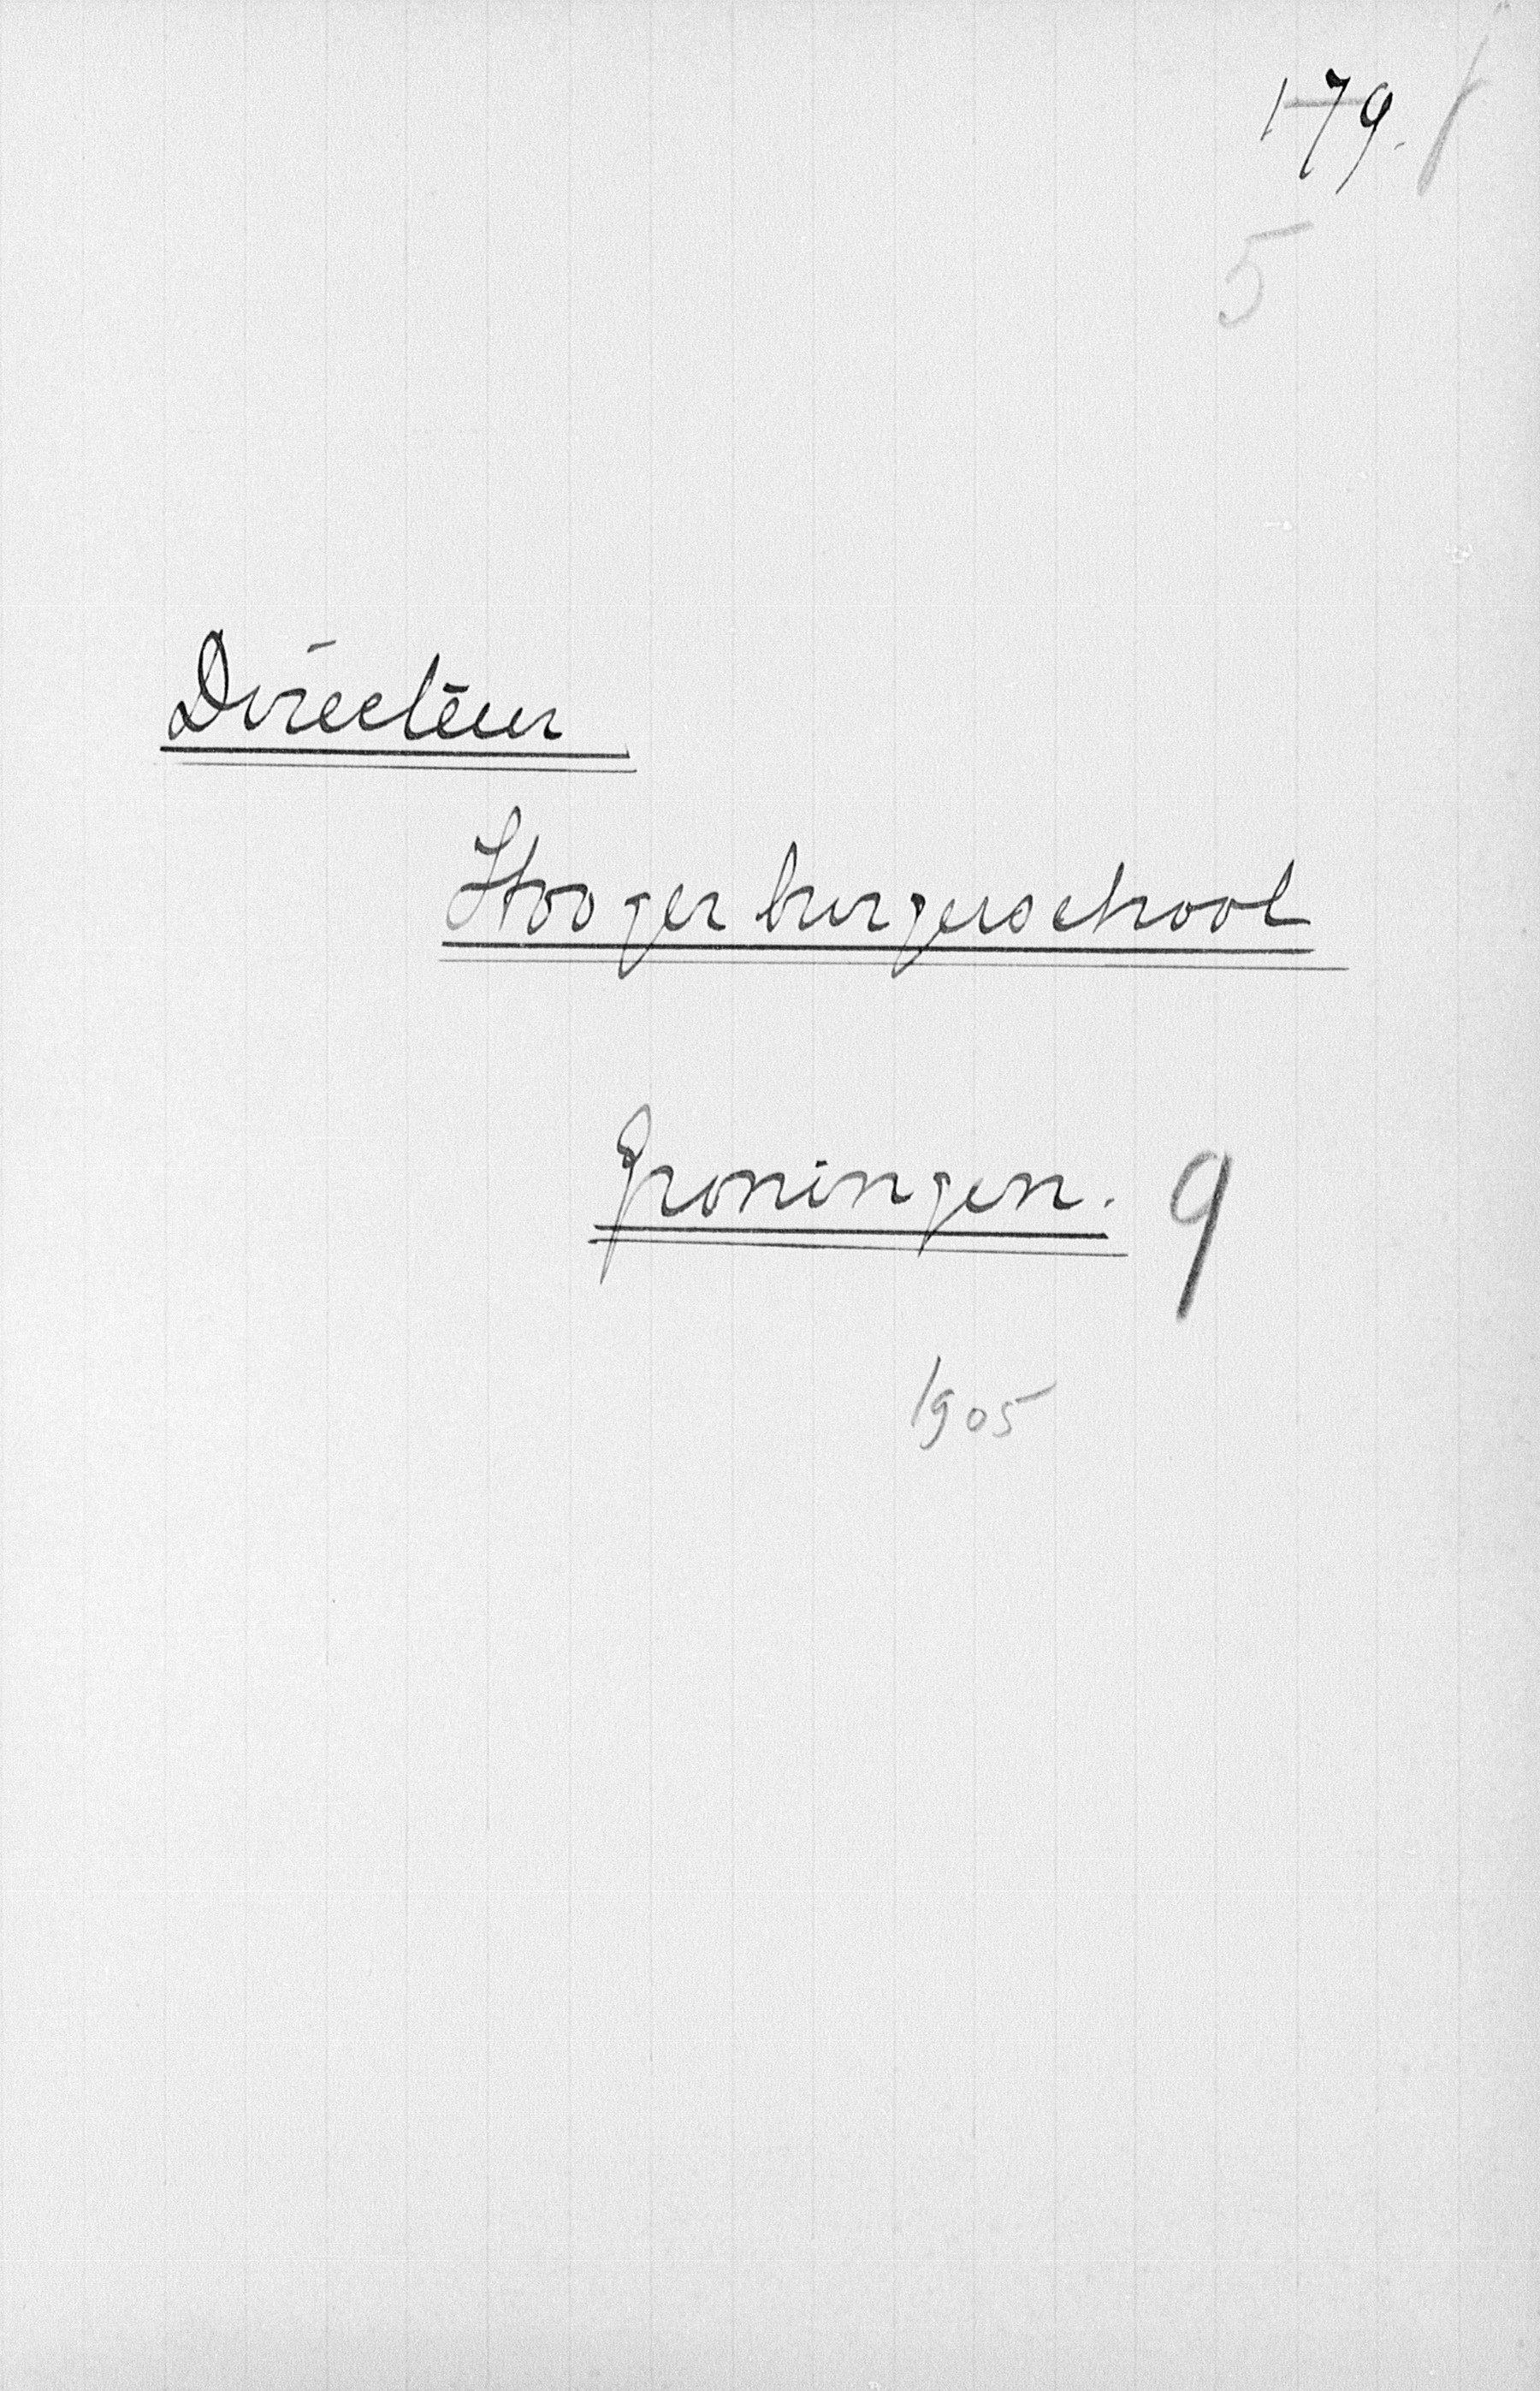 179.
5
Directeur
Hoogerburgerschool
Groningen. 9
1905